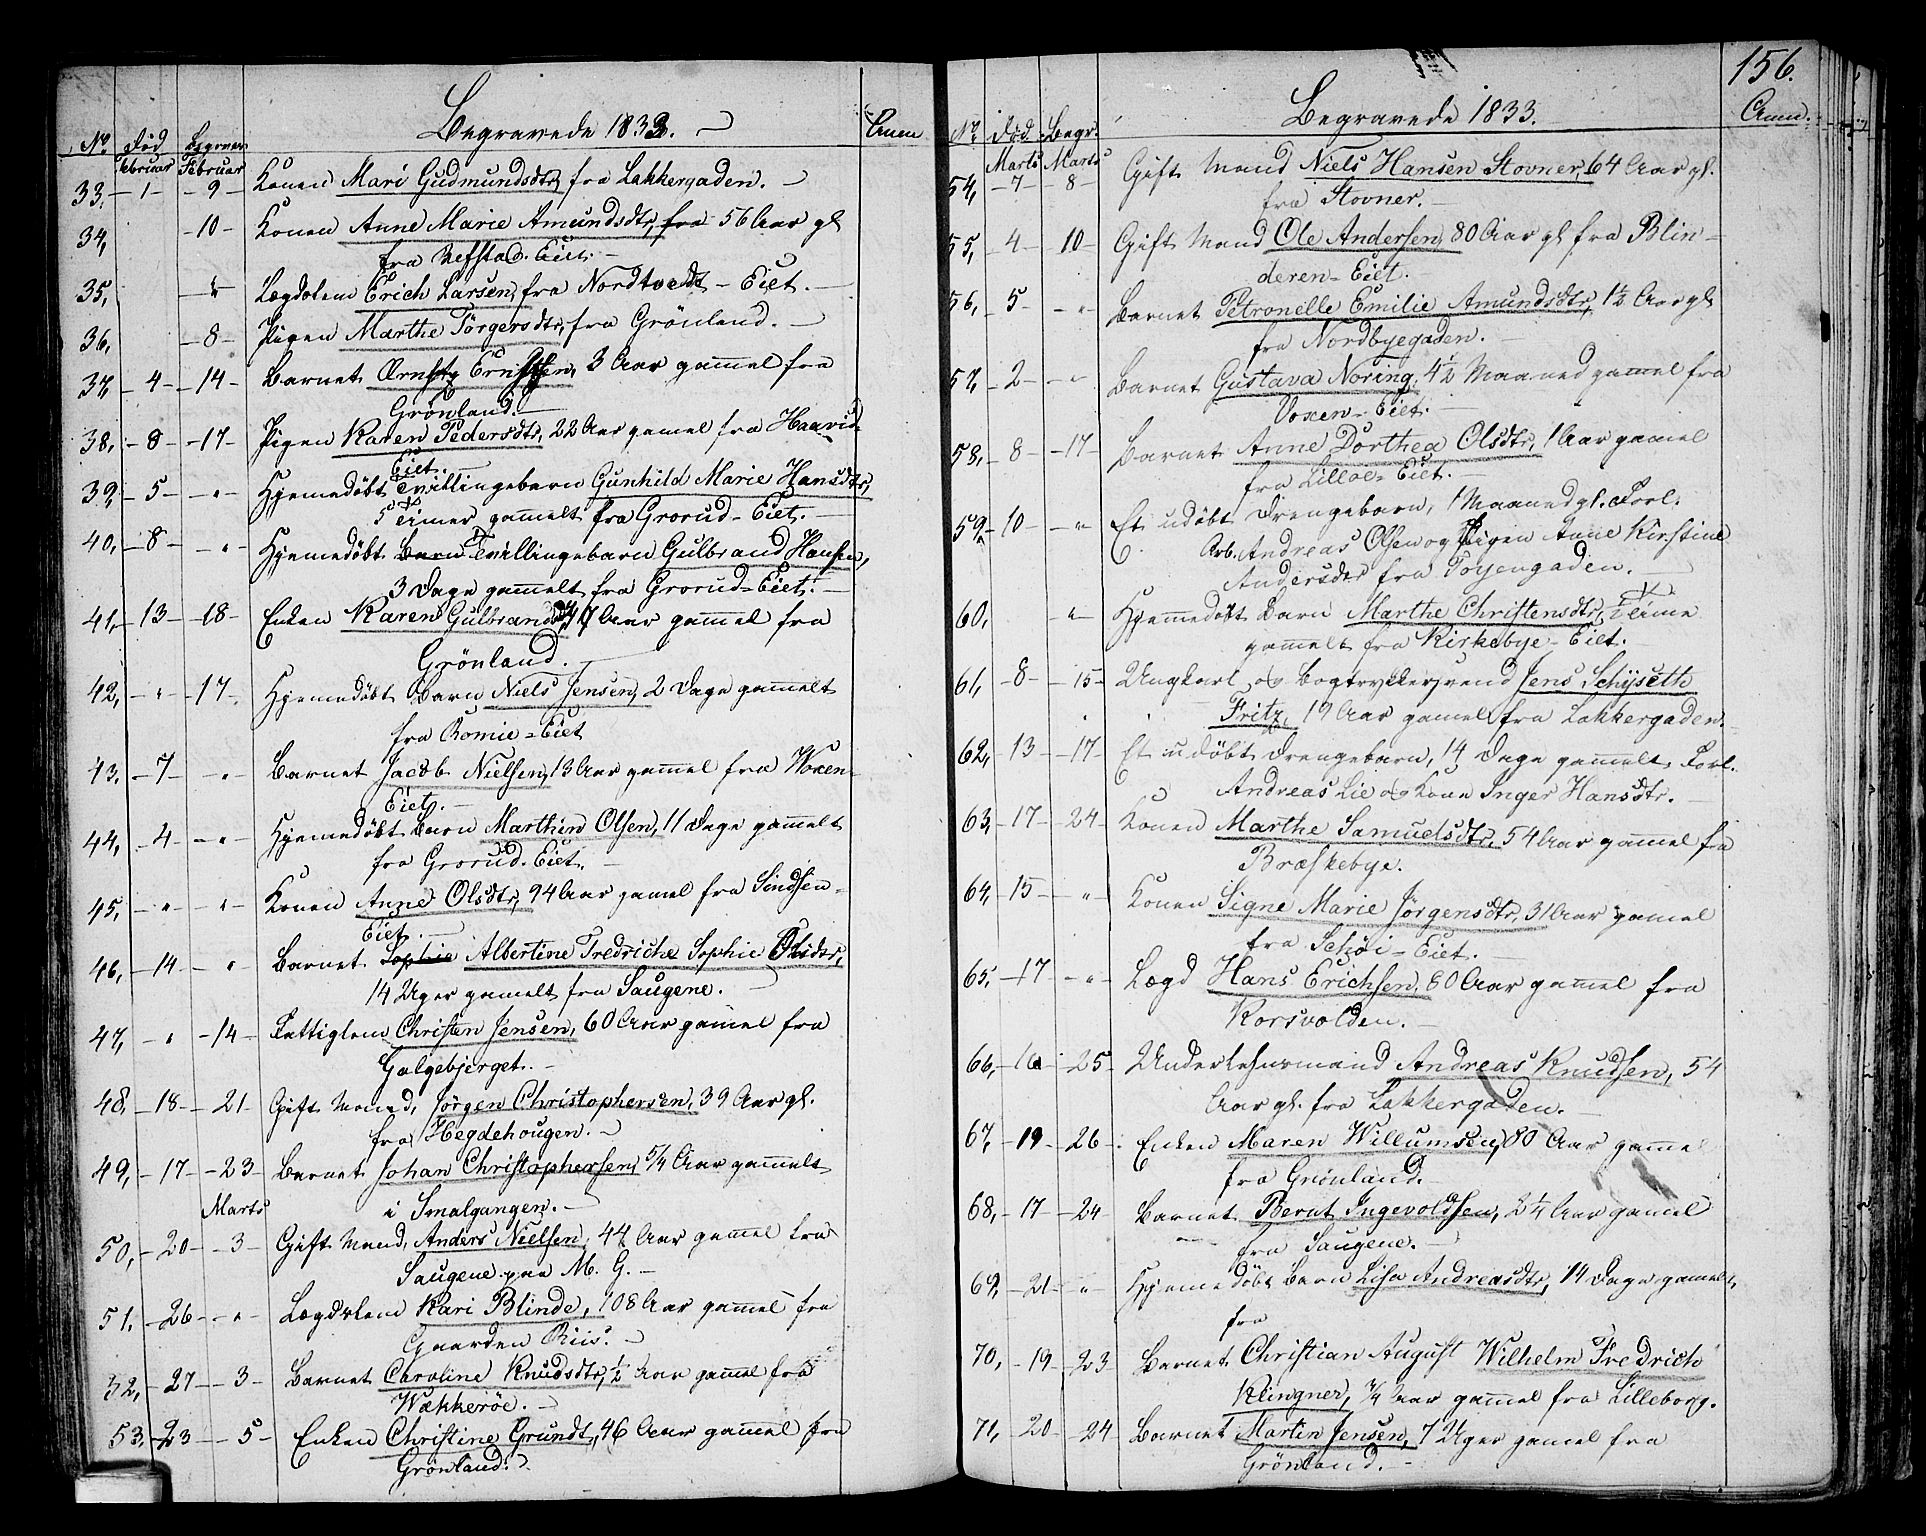 Begravede 1833.
Anm
No. Død Begraven
Februar Februar
33, 1 9 Konen Mari Gudmundsdtr, fra Lakkergaden.
34, 10 Konen Anne Marie Amundsdtr, fra 56 Aar gl
fra Refstad-Eiet.
35, " Lægdslem Erich Larsen, fra Nordtvedt-Eiet.
36, 8 Pigen Marthe Törgersdtr, fra Grönland.
37, 4 14 Barnet Ernst Ernstsen, 3 Aar gammel fra
Grönland.
38, 8 17 Pigen Karen Pedersdtr, 22 Aar gamel fra Haavid-
Eiet.
39, 5 " Hjemedøbt Tvillingebarn Gunhild Marie Hansdtr,
5 Timer gammelt fra Grorud-Eiet.
40, 8 " Hjemedøbt Barn Tvillingebarn Gulbrand Hansen,
3 Dage gammelt fra Grorud-Eiet.
41, 13 18 Enken Karen Gulbrandsdtr, 47 Aar gammel fra
Grönland.
42, " 17 Hjemedøbt Barn Niels Jensen, 2 Dage gammelt
fra Romie-Eiet
43, 7 " Barnet Jacob Nielsen, 13 Aar gammel fra Woxen-
Eiet.
44, 4 " Hjemedøbt Barn Marthin Olsen, 11 Dage gammelt
fra Grorud-Eiet.
45, " " Konen Anne Olsdtr, 94 Aar gamel fra Sindsen-
Eiet.
46, 14 " Barnet Sophie Albertine Fredriche Sophie Olsdtr,
14 Uger gamelt fra Saugene.
47, " 14 Fattiglem Christen Jensen, 60 Aar gamel fra
Galgebjerget.
48, 18 21 Gift Mand, Jørgen Christophersen, 39 Aar gl.
fra Hegdehougen.
49, 17 23 Barnet Johan Christophersen, 5/4 Aar gammelt
Marts i Smalgangen.
50, 20 3 Gift Mand, Anders Nielsen, 44 Aar gamel fra
Saugene paa M. G.
51, 26 " Lægdslem Kari Blinde, 108 Aar gammel fra
Gaarden Riis.
52, 27 3 Barnet Caroline Knudsdtr, 1/2 Aar gammel fra
Wækkerøe.
53, 23 5 Enken Christine Grundt, 46 Aar gammel fra
Grönland.
156.
Begravede 1833.
Anm.
No. Død Begr.
Marts Marts
54, 7 8 Gift Mand Niels Hansen Stovner, 64 Aar gl.
fra Stovner.
55, 4 10 Gift Mand Ole Andersen, 80 Aar gl fra Blin-
deren-Eiet.
56, 5 " Barnet Petronelle Emilie Amundsdtr, 1 1/2 Aar gl
fra Nordbyegaden.
57, 2 " Barnet Gustava Noring, 4 1/2 Maaned gamel fra
Voxen-Eiet.
58, 8 17 Barnet Anne Dorthea Olsdtr, 1 Aar gamel
fra Lilloe-Eiet.
59, 10 " Et udøbt Drengebarn, 1 Maaned gl. Forl.
Arb. Andreas Olsen og Pigen Anne Kirstine
Andersdtr fra Toyengaden.
60, " Hjemmedøbt Barn Marthe Christensdtr, 1/2 Time
gammelt fra Kirkebye-Eiet.
61, 8 15 Ungkarl og Bogtrykkersvend Jens Schjseth
Fritz, 19 Aar gamel fra Lakkergaden.
62, 13 17 Et udøbt Drengebarn, 14 Dage gammelt. Forl.
Andreas Lie og Kone Inger Hansdtr.
63, 17 24 Konen Marthe Samuelsdtr, 54 Aar gammel fra
Bræskebye.
64, 15 " Konen Signe Marie Jørgensdtr, 31 Aar gamel
fra Schöi-Eiet.
65, 17 " Lægd Hans Erichsen, 80 Aar gammel fra
Korsvolden.
66, 16 25 Underlehnsmand Andreas Knudsen, 54
Aar gl. fra Lakkergaden.
67, 19 26 Enken Maren Willumsen, 80 Aar gamme
fra Grønland.
68, 17 24 Barnet Berut Ingevoldsen, 2 1/4 Aar gamel
fra Saugene.
69, 21 " Hjemedøbt Barn Lisa Andreasdtr, 14 Dage gamelt,
fra
70, 19 23 Barnet Christian August Wilhelm Fredrich
Klingner, 3/4 Aar gammel fra Lilleborg.
71, 20 24 Barnet Martin Jensen, 7 Uger gamel fra
Grönland.